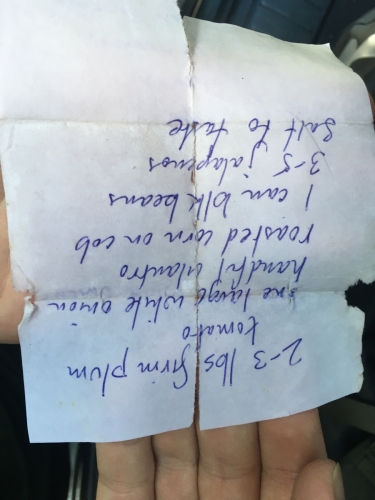 2-3 lbs firm plum
tomato
one large white onion
handful cilantro
roasted corn on cob
1 can blk beans
3-5 jalapenos
Salt to taste